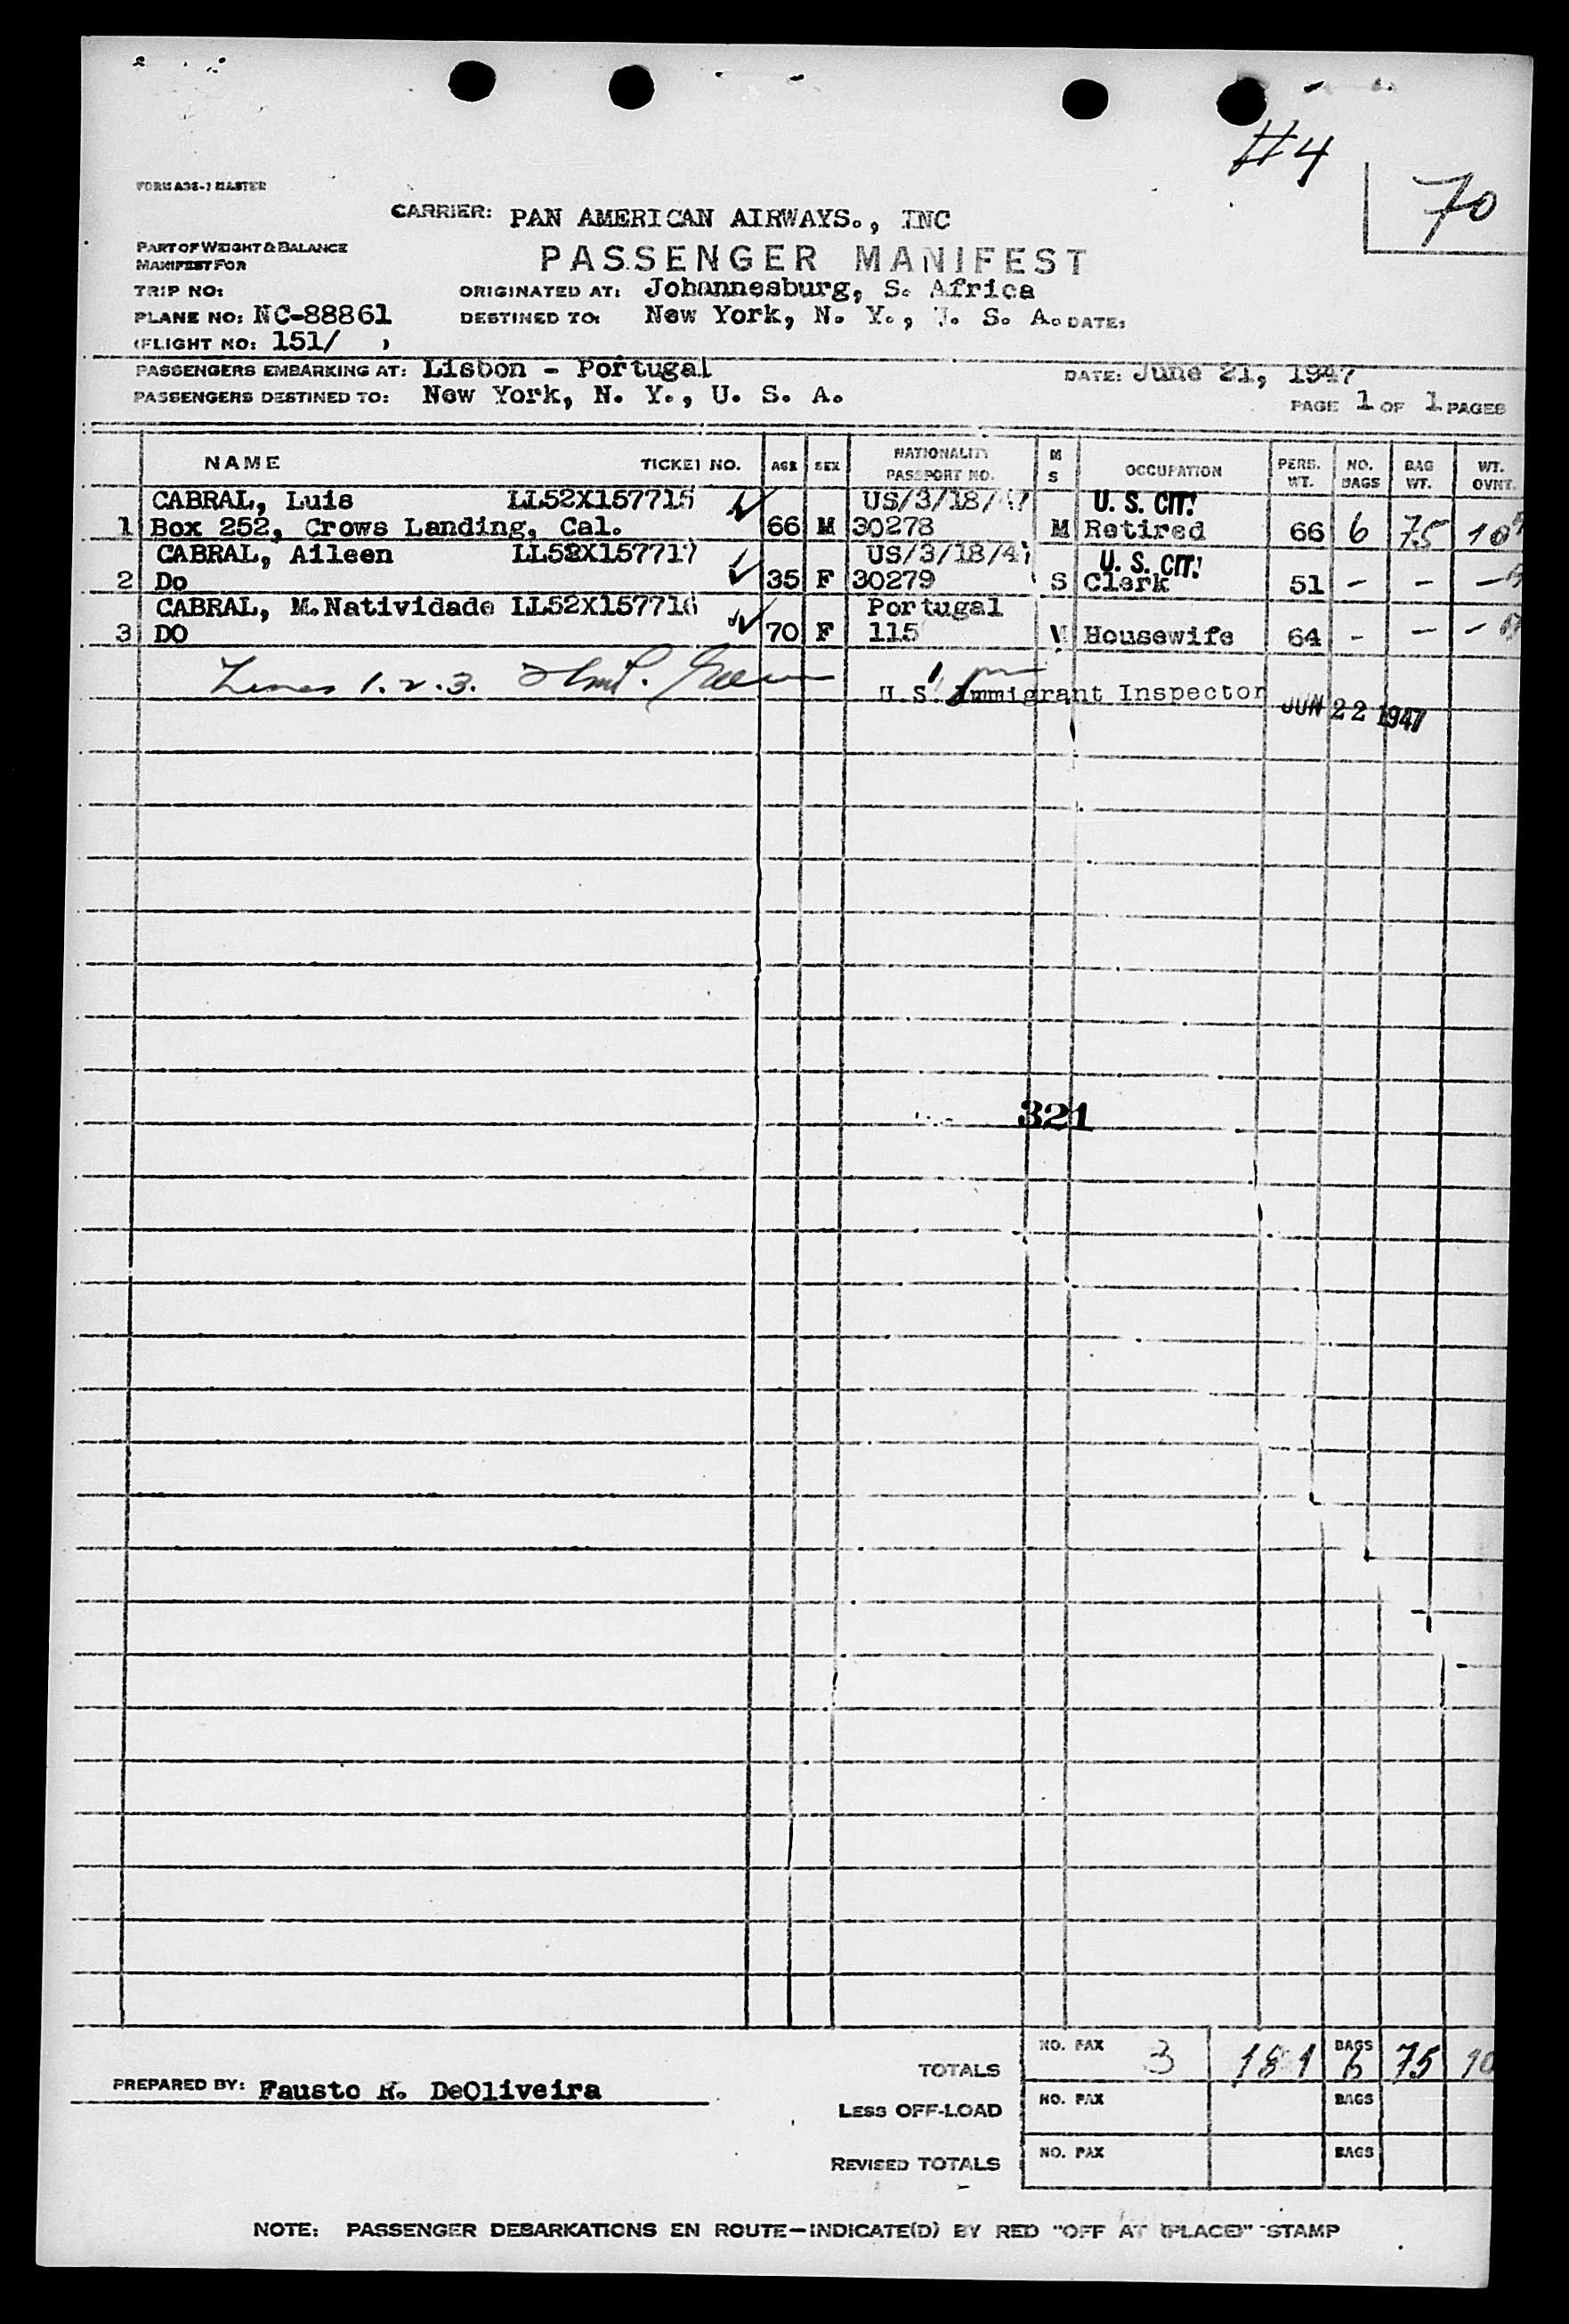 #4
70
FORM A38-7 MASTER
CARRIER: PAN AMERICAN AIRWAYS., INC
PART OF WEIGHT & BALANCE
MANIFEST FOR
PASSENGER MANIFEST
TRIP NO:
ORIGINATED AT: Johannesburg, S. Africa
PLANE NO: NC-88861
DESTINED TO: New York, N. Y., U. S. A. DATE:
(FLIGHT NO: 151/ )
PASSENGERS EMBARKING AT: Lisbon - Portugal DATE: June 21, 1947
PASSENGERS DESTINED TO: New York, N. Y., U. S. A. PAGE 1 OF 1 PAGES
NAME TICKET NO. AGE SEX NATIONALITY PASSPORT NO. M S OCCUPATION PERS. WT. NO. BAGS BAG WT. WT. OVNT.
CABRAL, Luis LL52X157715 US/3/18/47 U. S. CIT.
1 Box 252, Crows Landing, Cal. 66 M 30278 M Retired 66 6 75
CABRAL, Aileen LL52X157717 US/3/18/47 U. S. CIT.
2 Do 35 F 30279 S Clerk 51 - - -
CABRAL, M.Natividade LL52X157716 Portugal
3 DO 70 F 115 Housewife 64 - - -
Lines 1. 2. 3.
U.S. Immigrant Inspector JUN 22 1947
321
TOTALS NO. PAX 3 181 BAGS 6 75 10
PREPARED BY: Fausto R. DeOliveira
LESS OFF-LOAD NO. PAX BAGS
REVISED TOTALS NO. PAX BAGS
NOTE: PASSENGER DEBARKATIONS EN ROUTE—INDICATE(D) BY RED "OFF AT (PLACE)" STAMP